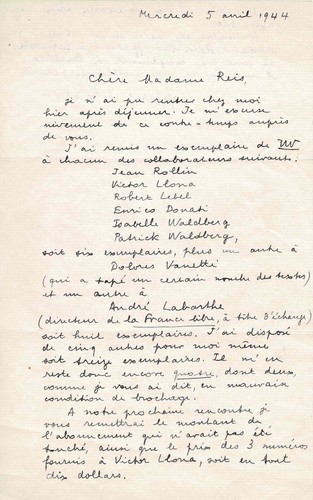 Mercredi 5 avril 1944
Chère Madame Reis,
je n'ai pu rentrer chez moi
hier après déjeuner. Je m'excuse
vivement de ce contre-temps auprès
de vous.
J'ai remis un exemplaire de VVV
à chacun des collaborateurs suivants:
Jean Rollin
Victor Llona
Robert Lebel
Enrico Donati
Isabelle Waldberg
Patrick Waldberg,
soit six exemplaires, plus un autre à
Dolorès Vanetti
(qui a tapé un certain nombre des textes)
et un autre à
André Labarthe
(directeur de la France libre, à titre d'échange)
soit huit exemplaires. J'ai disposé
de cinq autres pour moi même
soit treize exemplaires. Il m'en
reste donc encore quatre, dont deux,
comme je vous ai dit, en mauvaise
condition de brochage.
A notre prochaine rencontre je
vous remettrai le montant de
l'abonnement qui n'avait pas été
touché, ainsi que le prix des 3 numéros
fournis à Victor Llona, soit en tout
dix dollars.